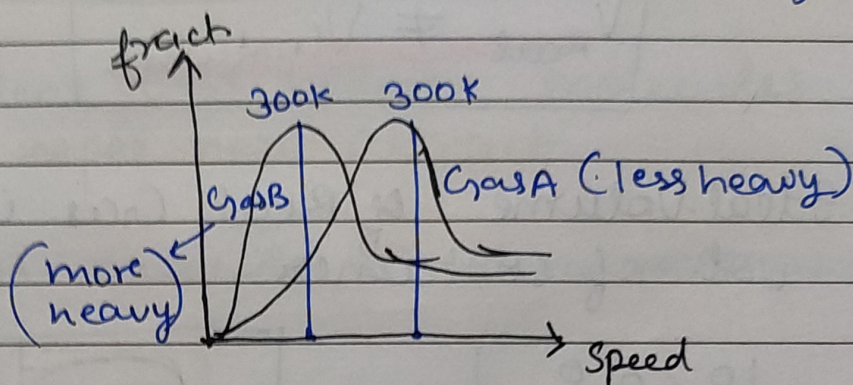 fract
300K 300K
GasB
GasA (less heavy)
(more
heavy)
Speed